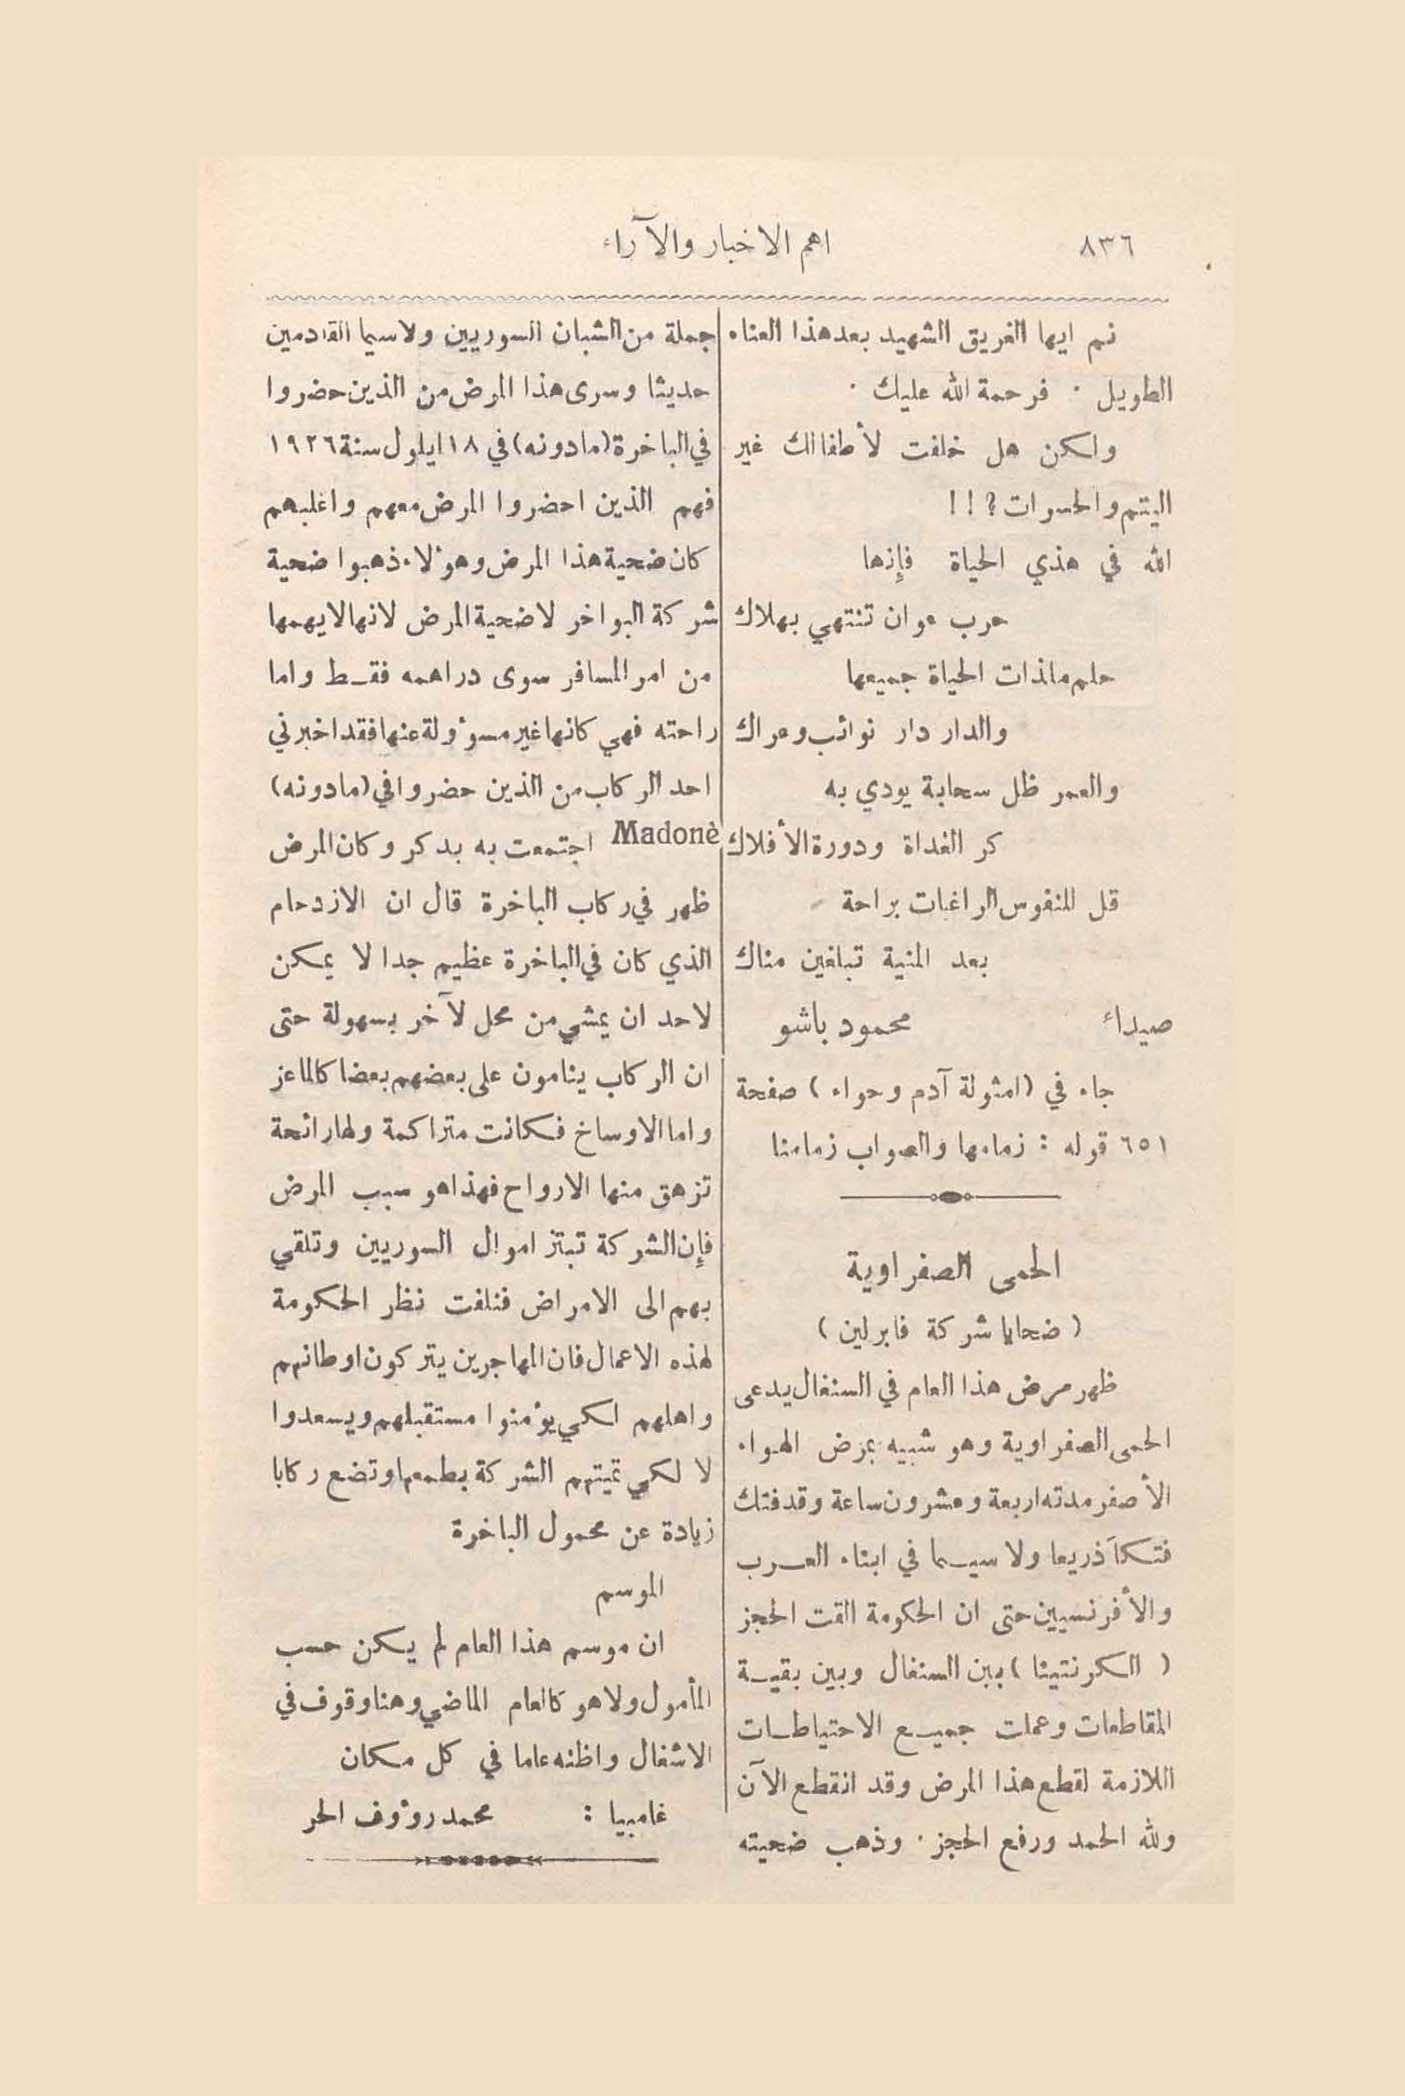 ٨٣٦
اهم الاخبار والآراء
نم ايها الغريق الشهيد بعد هذا العناء
الطويل . فرحمة الله عليك .
ولكن هل خلفت لأطفالك غير
اليتم والحسرات ? ! !
الله في هذي الحياة فإنها
حرب عوان تنتهي بهلاك
حلم ملذات الحياة جميعها
والدار دار نوائب وعراك
والعمر ظل سحابة يودي به
كر الغداة ودورة الأفلاك
قل للنفوس الراغبات براحة
بعد المنية تبلغين مناك
صيداء محمود باشو
جاء في (امثولة آدم وحواء) صفحة
٦٥١ قوله : زمامها والصواب زمامنا
الحمى الصفراوية
( ضحايا شركة فابرلين )
ظهر مرض هذا العام في السنغال يدعى
الحمى الصفراوية وهو شبيه بمرض الهواء
الأصفر مدته اربعة وعشرون ساعة وقد فتك
فتكاً ذريعا ولا سيما في ابناء العرب
والأفرنسيين حتى ان الحكومة القت الحجز
( الكرنتينا ) بين السنغال وبين بقية
المقاطعات وعملت جميع الاحتياطات
اللازمة لقطع هذا المرض وقد انقطع الآن
ولله الحمد ورفع الحجز . وذهب ضحيته
جملة من الشبان السوريين ولاسيما القادمين
حديثا وسرى هذا المرض من الذين حضروا
في الباخرة (مادونه) في ١٨ ايلول سنة ١٩٢٦
فهم الذين احضروا المرض معهم واغلبهم
كان ضحية هذا المرض وهؤلاء ذهبوا ضحية
شركة البواخر لا ضحية المرض لانها لا يهمها
من امر المسافر سوى دراهمه فقط واما
راحته فهي كانها غير مسؤولة عنها فقد اخبرني
احد الركاب من الذين حضروا في (مادونه)
Madonè اجتمعت به بدكر وكان المرض
ظهر في ركاب الباخرة قال ان الازدحام
الذي كان في الباخرة عظيم جدا لا يمكن
لاحد ان يمشي من محل لآخر بسهولة حتى
ان الركاب ينامون على بعضهم بعضا كالماعز
واما الاوساخ فكانت متراكمة ولها رائحة
تزهق منها الارواح فهذا هو سبب المرض
فإن الشركة تبتز اموال السوريين وتلقي
بهم الى الامراض فنلفت نظر الحكومة
لهذه الاعمال فان المهاجرين يتركون اوطانهم
واهلهم لكي يؤمنوا مستقبلهم ويسعدوا
لا لكي تميتهم الشركة بطمعها وتضع ركابا
زيادة عن محمول الباخرة
الموسم
ان موسم هذا العام لم يكن حسب
المأمول ولا هو كالعام الماضي وهنا وقوف في
الاشغال واظنه عاما في كل مكان
غامبيا : محمد رؤوف الحر